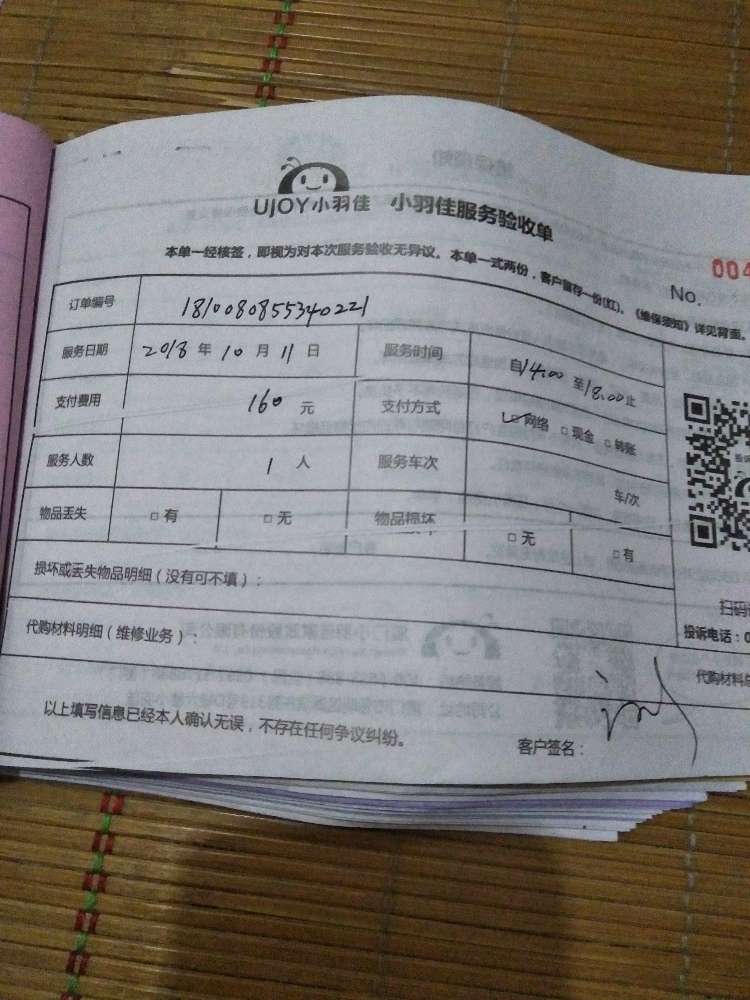 UJOY小羽佳 小羽佳服务验收单
本单一经核签，即视为对本次服务验收无异议。本单一式两份，客户留存一份(红)。《维保须知》详见背面。
No. 004
订单编号 1810080855340221
服务日期 2018 年 10 月 11 日 服务时间 自14:00 至18:00止
支付费用 160 元 支付方式 ☑网络 □现金 □转账
服务人数 1 人 服务车次 车/次
物品丢失 □有 □无 物品损坏 □无 □有
损坏或丢失物品明细（没有可不填）：
扫码
代购材料明细（维修业务）：
投诉电话：0
代购材料
以上填写信息已经本人确认无误，不存在任何争议纠纷。
客户签名：